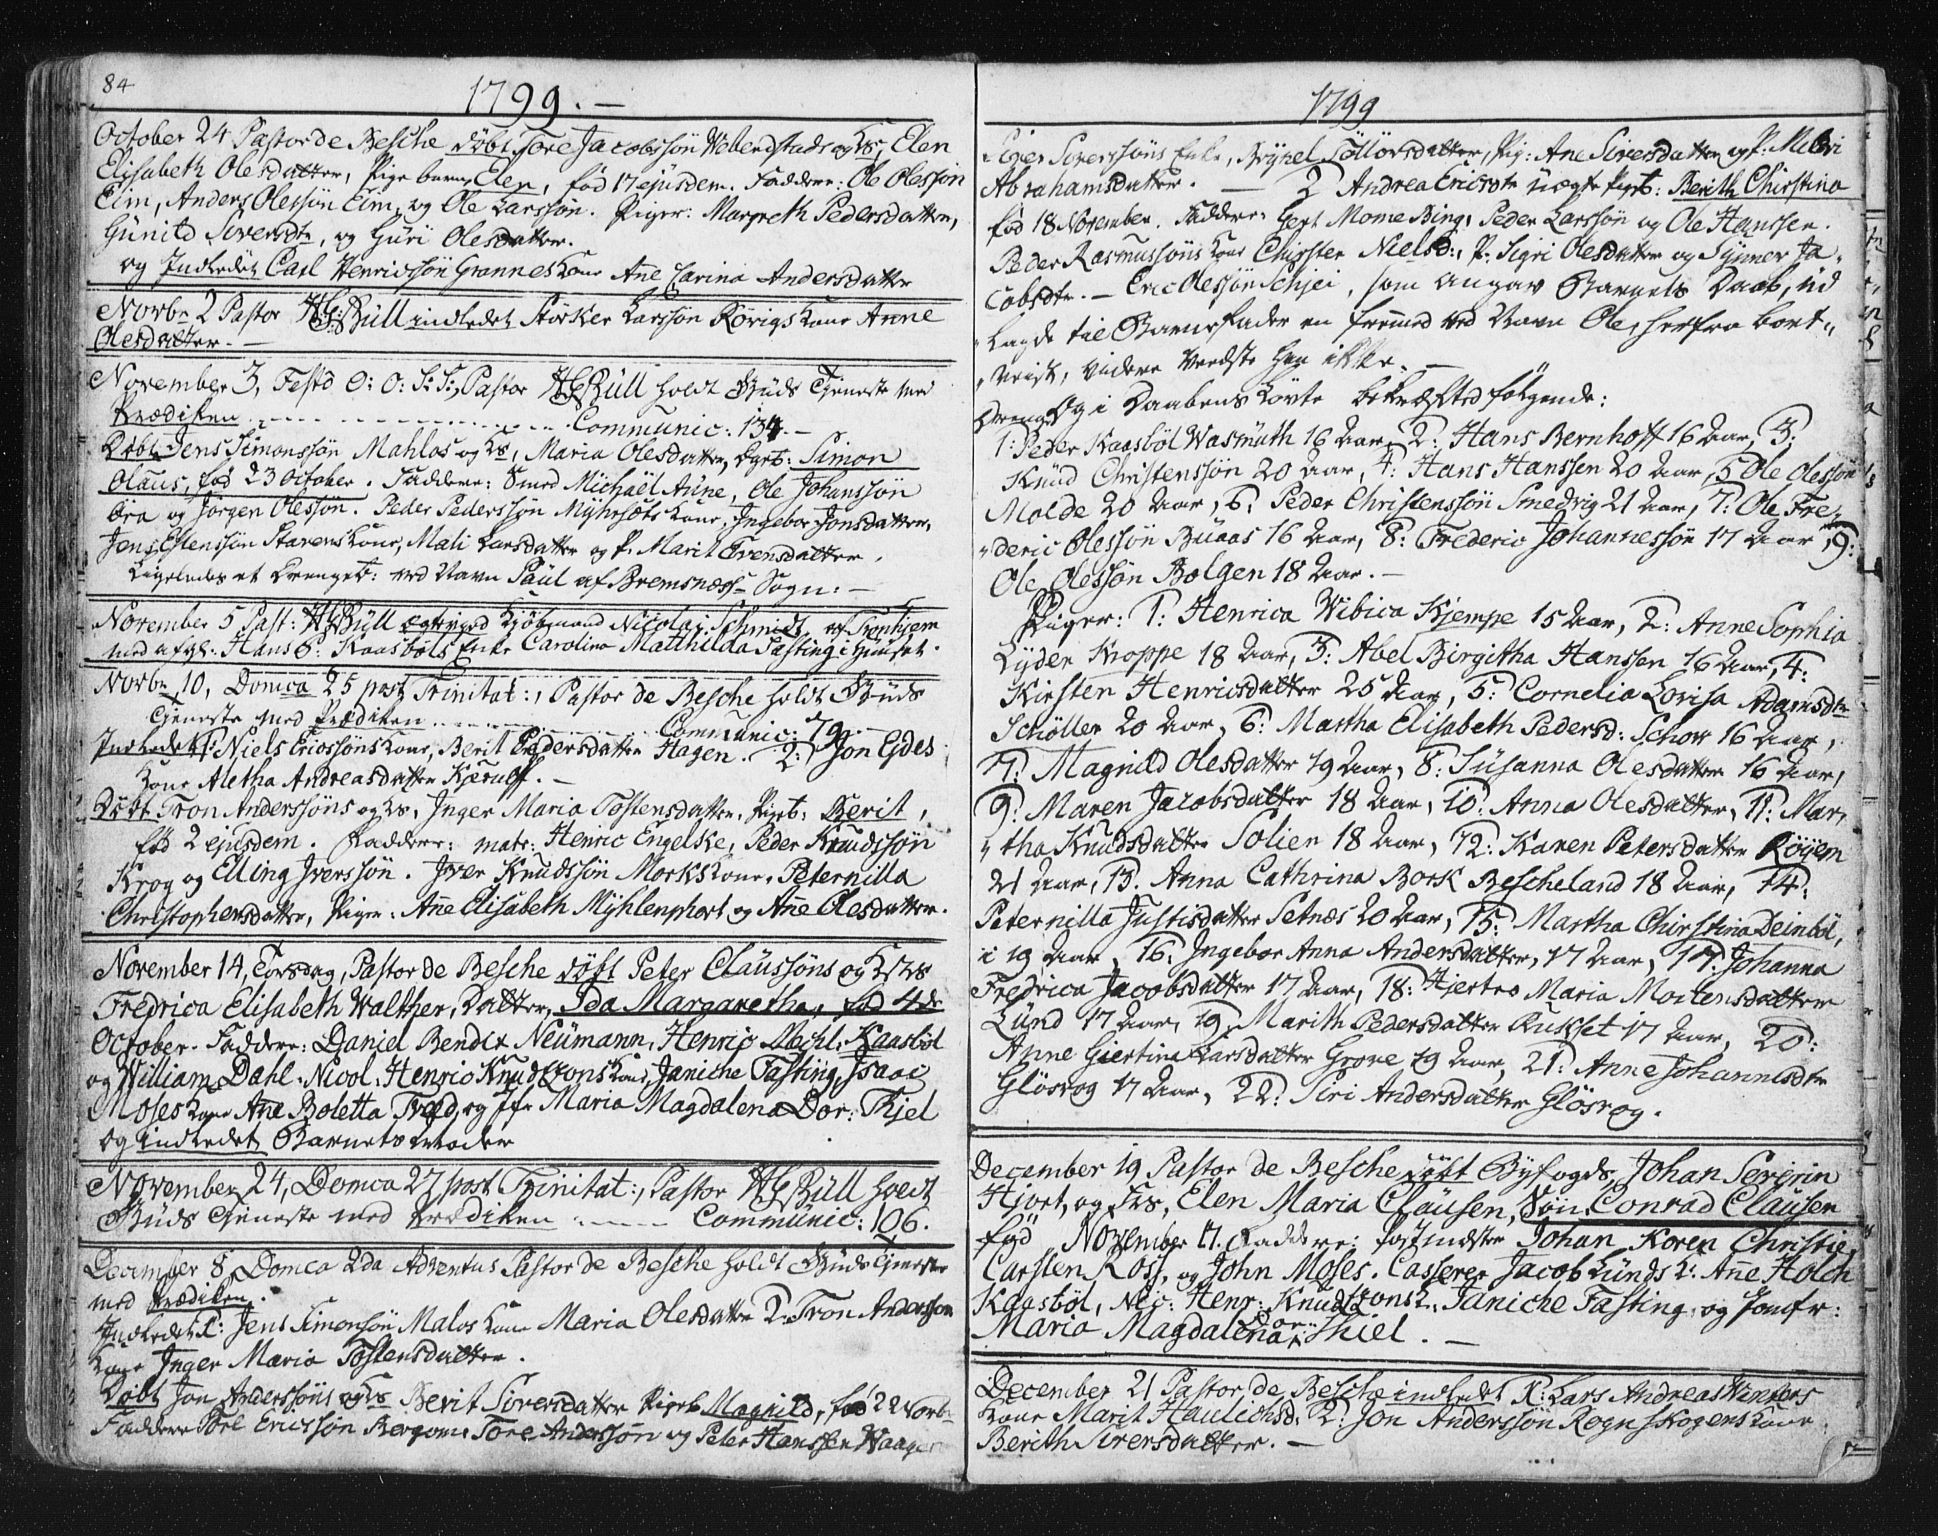 84
1799. —
October 24 Pastor de Besche döbt Tore Jacobssön Weberdstads og Hs, Elen
Elisabeth Olesdatter, Pige barn Elen, fød 17 ejusdem. Faddere: Ole Olessön
Eim, Anders Olessön Eim, og Ole Larssön. Piger: Margreth Pedersdatter,
Gunild Siversdtr, og Guri Olesdatter.
og Indledet Carl Henricssön Grannes Kone Ane Carina Andersdatter
Novbr 2 Pastor HGBüll indledet Störker Larssön Rörigs Kone Anne
Olesdatter. —
November 3, Festd O: O: S: S:, Pastor HGBüll holdt Guds Tjeneste med
Prædiken ........ Communic: 134. —
Döbt Jens Simonssön Mahlos og Hs, Maria Olesdatter, Dgrb: Simon
Olaus, fød 23 October. Faddere: Smed Michaël Aune, Ole Johanssön
Öra og Jörgen Olessön. Peder Pederssön Myhrsæts Kone, Ingebor Jonsdatter,
Jens Estenssön Stavens Kone, Mali Larsdatter og P. Marit Svensdatter.
Ligeledes et Drengeb: ved Navn Paul af Bremsnæss Sogn. —
November 5 Past: HGBüll Egteviged Kjöbmand Nicolaj Schmidt af Tronhjem
med afgl. Hans C: Kaasböls Enke Carolina Matthilda Fasting i Huuset.
Novbr 10, Domca 25 post Trinitat:, Pastor de Besche holdt Guds
Tjeneste med Prædiken ........ Communic: 79. —
Indledet 1: Niels Ericssöns Kone, Berit Pedersdatter Hagen. 2: Jon Ejdes
Kone Aletha Andreasdatter Kjerulf. —
Döbt Tron Anderssöns og Hs, Inger Maria Tostensdatter, Pigeb: Berit,
fød 2 ejusdem. Faddere: matr: Henric Engelske, Peder Knudssön
Krog og Elling Iverssön. Iver Knudssön Morks Kone, Peternilla
Christophersdatter, Piger: Ane Elisabeth Myhlenphort og Ane Olesdatter.
November 14, Torsdag, Pastor de Besche döbt Peter Claussöns og Hs
Fredrica Elisabeth Walther, Datter, Ida Margaretha, fød 4de
October. Faddere: Daniel Bendix Neumann, Henric Mechl: Kaasböl
og William Dahl. Nicol: Henric Knudtzons Kone, Janiche Fasting, Isaac
Moses Kone Ane Boletta Tred, og Jfr Maria Magdalena Dor: Thjel
og indledet Barnets Moder
November 24, Domca 27 post Trinitat:, Pastor HGBüll holdt
Guds Tjeneste med Prædiken ...... Communic: 106.
December 8 Domca 2da Adventus Pastor de Besche holdt Guds Tjeneste
med Prædiken.
Indledet 1: Jens Simonssön Malos Kone Maria Olesdatter 2: Tron Anderssöns
Kone Inger Maria Tostensdatter.
Döbt Jon Anderssöns og Hs Berit Siversdatter Pigeb Magnild, fød 22 Novbr
Faddere Ericssön Bergom, Tore Anderssön og Peter Hanssen Waagen
1799
Siver Siverssöns Enke, Brynel Tollovsdatter, Pig: Ane Siversdatter og P: Meldri
Abrahamsdatter. — 2 Andrea Ericsdtr uægte Pigeb: Berith Christina
fød 18 November. Faddere: Gert Mome Bing, Peder Larssön og Ole Hanssen.
Peder Rasmussöns Kone Chirsten Nielsd:, P. Sigri Olesdatter og Synner Ja-
cobsdtr. — Eric Olessön Schjei, som angav Barnets Daab, ud
lagde til Barnefader en fremmed ved Navn Ole, herfra bort-
reist, videre vidste han ikke. —
Og i Daabens Löfte bekræftet følgende:
Drenge
1: Peder Kaasböl Wasmuth 16 Aar, 2: Hans Bernhoff 16 Aar, 3:
Knud Christenssön 20 Aar, 4: Hans Hanssen 20 Aar, 5 Ole Olessön
Molde 20 Aar, 6: Peder Christenssön Smedvig 21 Aar, 7: Ole Fre-
deric Olessön Buaas 16 Aar, 8: Frederic Johannessön 17 Aar, 9:
Ole Olessön Bolgen 18 Aar. —
Piger: 1: Henrica Wibica Kjempe 15 Aar, 2: Anne Sophia
Lyder Knoppe 18 Aar, 3: Abel Birgitha Hanssen 16 Aar, 4:
Kirsten Henricsdatter 25 Aar, 5: Cornelia Lovisa Adamsdtr
Schöller 20 Aar, 6: Martha Elisabeth Pedersd: Schow 16 Aar,
7: Magnild Olesdatter 19 Aar, 8: Susanna Olesdatter 16 Aar,
9: Maren Jacobsdatter 18 Aar, 10: Anna Olesdatter, 11: Mar-
tha Knudsdatter Solien 18 Aar, 12: Karen Petersdatter Röyem
21 Aar, 13. Anna Cathrina Bork Bescheland 18 Aar, 14:
Peternilla Justisdatter Setnæs 20 Aar, 15: Martha Chirstina Deinböl,
i 19 Aar, 16: Ingebor Anna Andersdatter, 17 Aar, 17: Johanna
Fredrica Jacobsdatter 17 Aar, 18: Hjertro Maria Mortensdatter
Lund 17 Aar, 19: Marith Pedersdatter Rukset 17 Aar, 20:
Anne Giertina Larsdatter Grove 19 Aar, 21: Anne Johannesdtr
Glösvog 17 Aar, 22: Siri Andersdatter Glösvog.
December 19 Pastor de Besche döbt Byfogds, Johan Severin
Hjort, og Hs, Elen Maria Clausen, Sön, Conrad Clausen
fød November 17. Faddere: Postmester Johan Koren Christie,
Carsten Ross, og John Moses. Casserer Jacob Lunds K: Ane Holch
Kaasböl, Nic: Henr: Knudtzons K:, Janiche Fasting, og Jomfr:
Maria Magdalena Dor: Thiel. —
December 21 Pastor de Besche indledet 1: Lars Andreas Winters
Kone Marit Haulichsd: 2: Jon Anderssön Rognskogens Kone
Berith Siversdatter. —